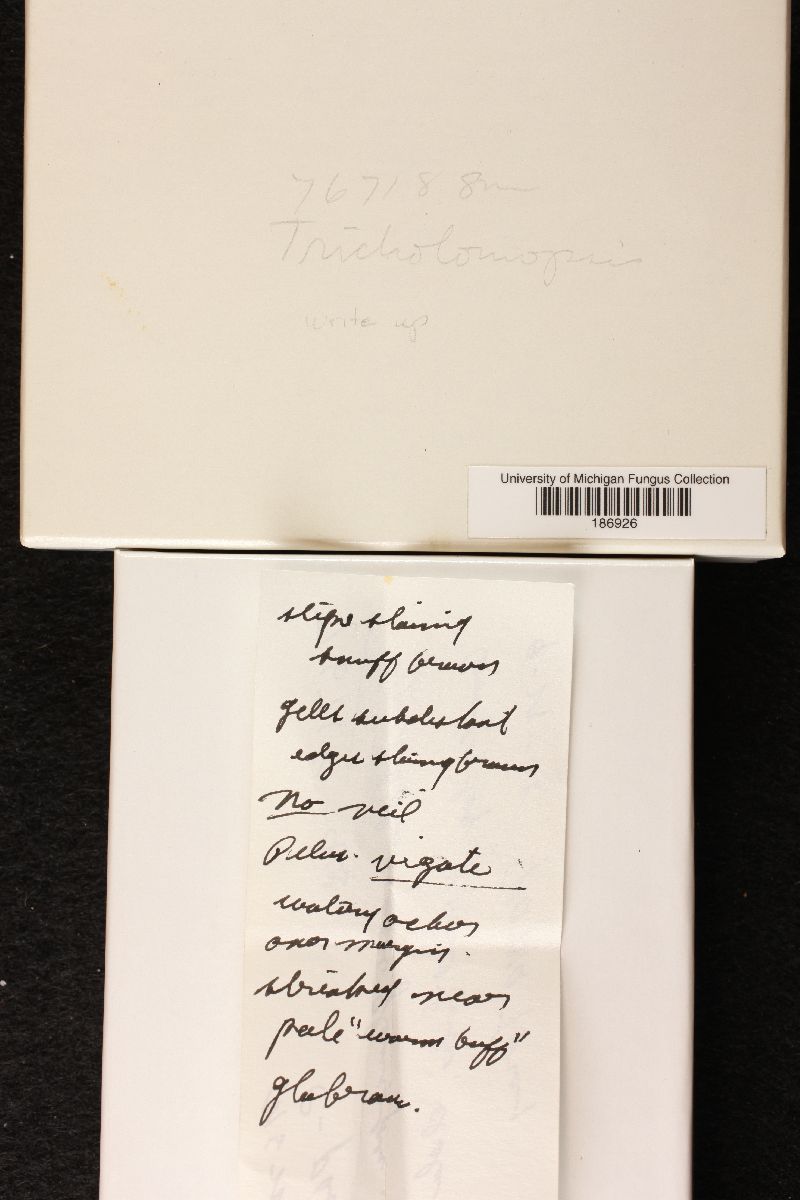 76718 Sm
Tricholomopsis
write up
University of Michigan Fungus Collection
186926
stipe staining
snuff brown
gills subdistant
edges staining brown
No veil
Pileus. virgate
watery ocher
over margin.
streaked near
pale "warm buff"
glabrous.